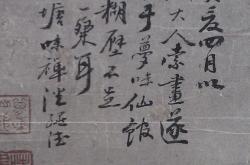 亥四月以
大人索畫遂
于夢味仙館
糊壁不足
一粲耳
塘味禪